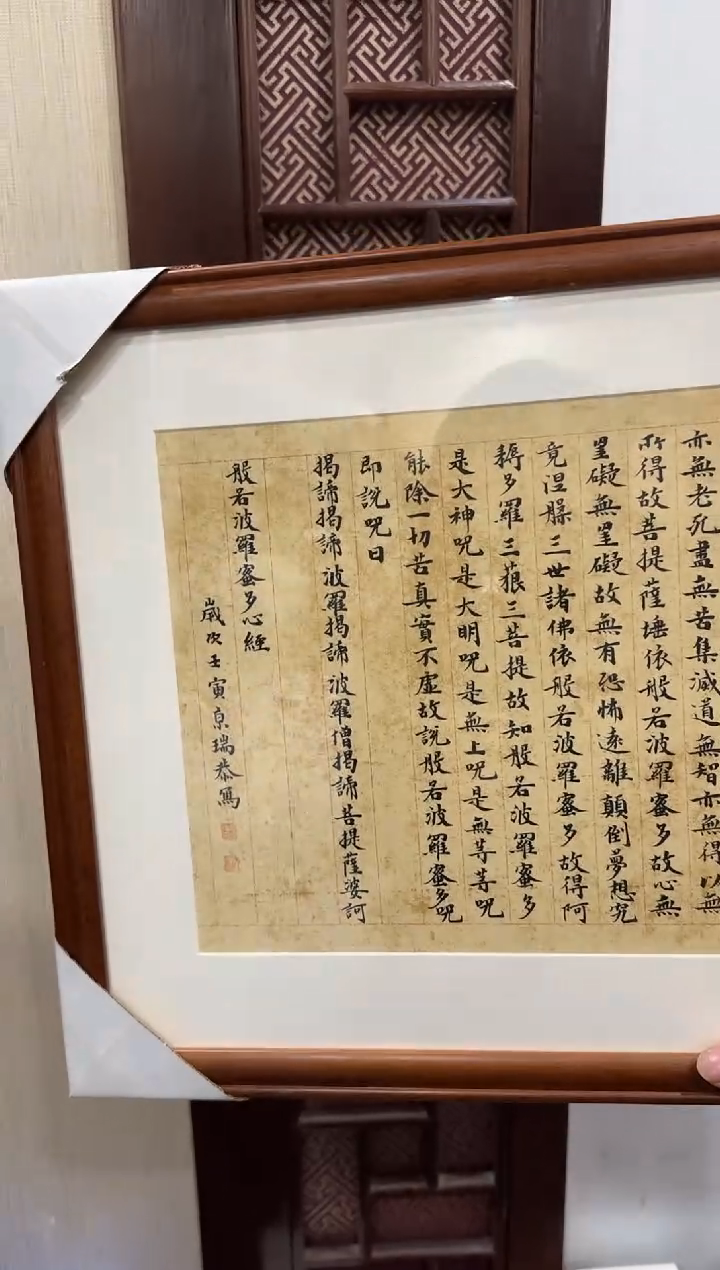 亦無老死盡無苦集滅道無智亦無得以無
所得故菩提薩埵依般若波羅蜜多故心無
罣礙無罣礙故無有恐怖遠離顛倒夢想究
竟涅槃三世諸佛依般若波羅蜜多故得阿
耨多羅三藐三菩提故知般若波羅蜜多
是大神呪是大明呪是無上呪是無等等呪
能除一切苦真實不虛故說般若波羅蜜多呪
即說呪曰
揭諦揭諦波羅揭諦波羅僧揭諦菩提薩婆訶
般若波羅蜜多心經
歲次壬寅京瑞恭寫